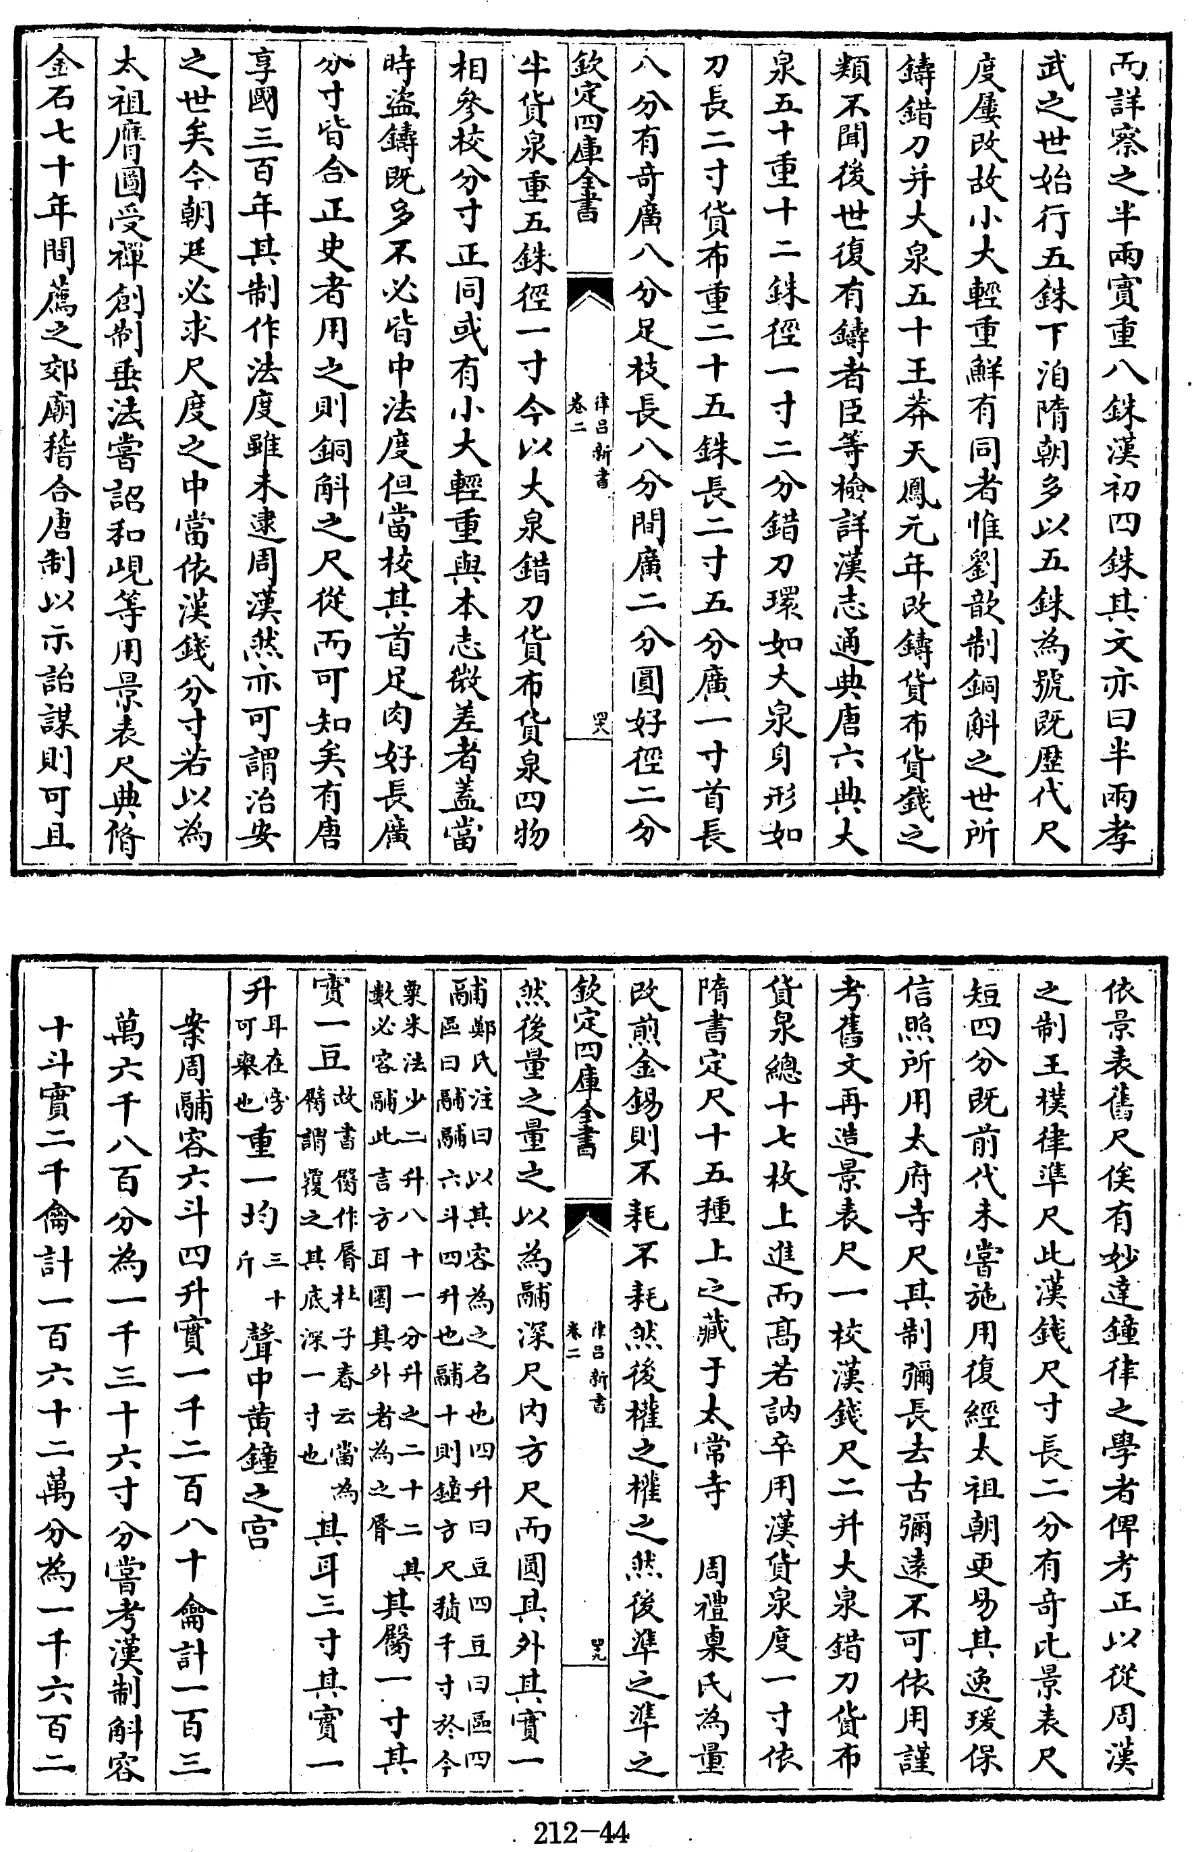 而詳察之半兩實重八銖漢初四銖其文亦曰半兩孝
武之世始行五銖下洎隋朝多以五銖為號既歷代尺
度屢改故小大輕重鮮有同者惟劉歆制銅斛之世所
鑄錯刀并大泉五十王莽天鳳元年改鑄貨布貨錢之
類不聞後世復有鑄者臣等檢詳漢志通典唐六典大
泉五十重十二銖徑一寸二分錯刀環如大泉身形如
刀長二寸貨布重二十五銖長二寸五分廣一寸首長
八分有奇廣八分足枝長八分間廣二分圓好徑二分
欽定四庫全書
律呂新書
卷二
四八
半貨泉重五銖徑一寸今以大泉錯刀貨布貨泉四物
相參校分寸正同或有小大輕重與本志微差者蓋當
時盜鑄既多不必皆中法度但當校其首足肉好長廣
分寸皆合正史者用之則銅斛之尺從而可知矣有唐
享國三百年其制作法度雖未逮周漢然亦可謂治安
之世矣今朝廷必求尺度之中當依漢錢分寸若以為
太祖膺圖受禪創制垂法嘗詔和峴等用景表尺典脩
金石七十年間薦之郊廟稽合唐制以示詒謀則可且
依景表舊尺俟有妙達鐘律之學者俾考正以從周漢
之制王樸律準尺此漢錢尺寸長二分有奇比景表尺
短四分既前代未嘗施用復經太祖朝更易其逸瑗保
信照所用太府寺尺其制彌長去古彌遠不可依用謹
考舊文再造景表尺一校漢錢尺二并大泉錯刀貨布
貨泉總十七枚上進而高若訥卒用漢貨泉度一寸依
隋書定尺十五種上之藏于太常寺 周禮㮚氏為量
改煎金錫則不耗不耗然後權之權之然後準之準之
欽定四庫全書
律呂新書
卷二
四九
然後量之量之以為鬴深尺內方尺而圜其外其實一
鬴鄭氏注曰以其容為之名也四升曰豆四豆曰區四
區曰鬴鬴六斗四升也鬴十則鐘方尺積千寸於今
粟米法少二升八十一分升之二十二其
數必容鬴此言方耳圜其外者為之脣其臀一寸其
實一豆故書臀作脣杜子春云當為
臀謂覆之其底深一寸也其耳三寸其實一
升耳在旁
可舉也重一鈞三十
斤聲中黃鐘之宮
案周鬴容六斗四升實一千二百八十龠計一百三
萬六千八百分為一千三十六寸分嘗考漢制斛容
十斗實二千龠計一百六十二萬分為一千六百二
212-44